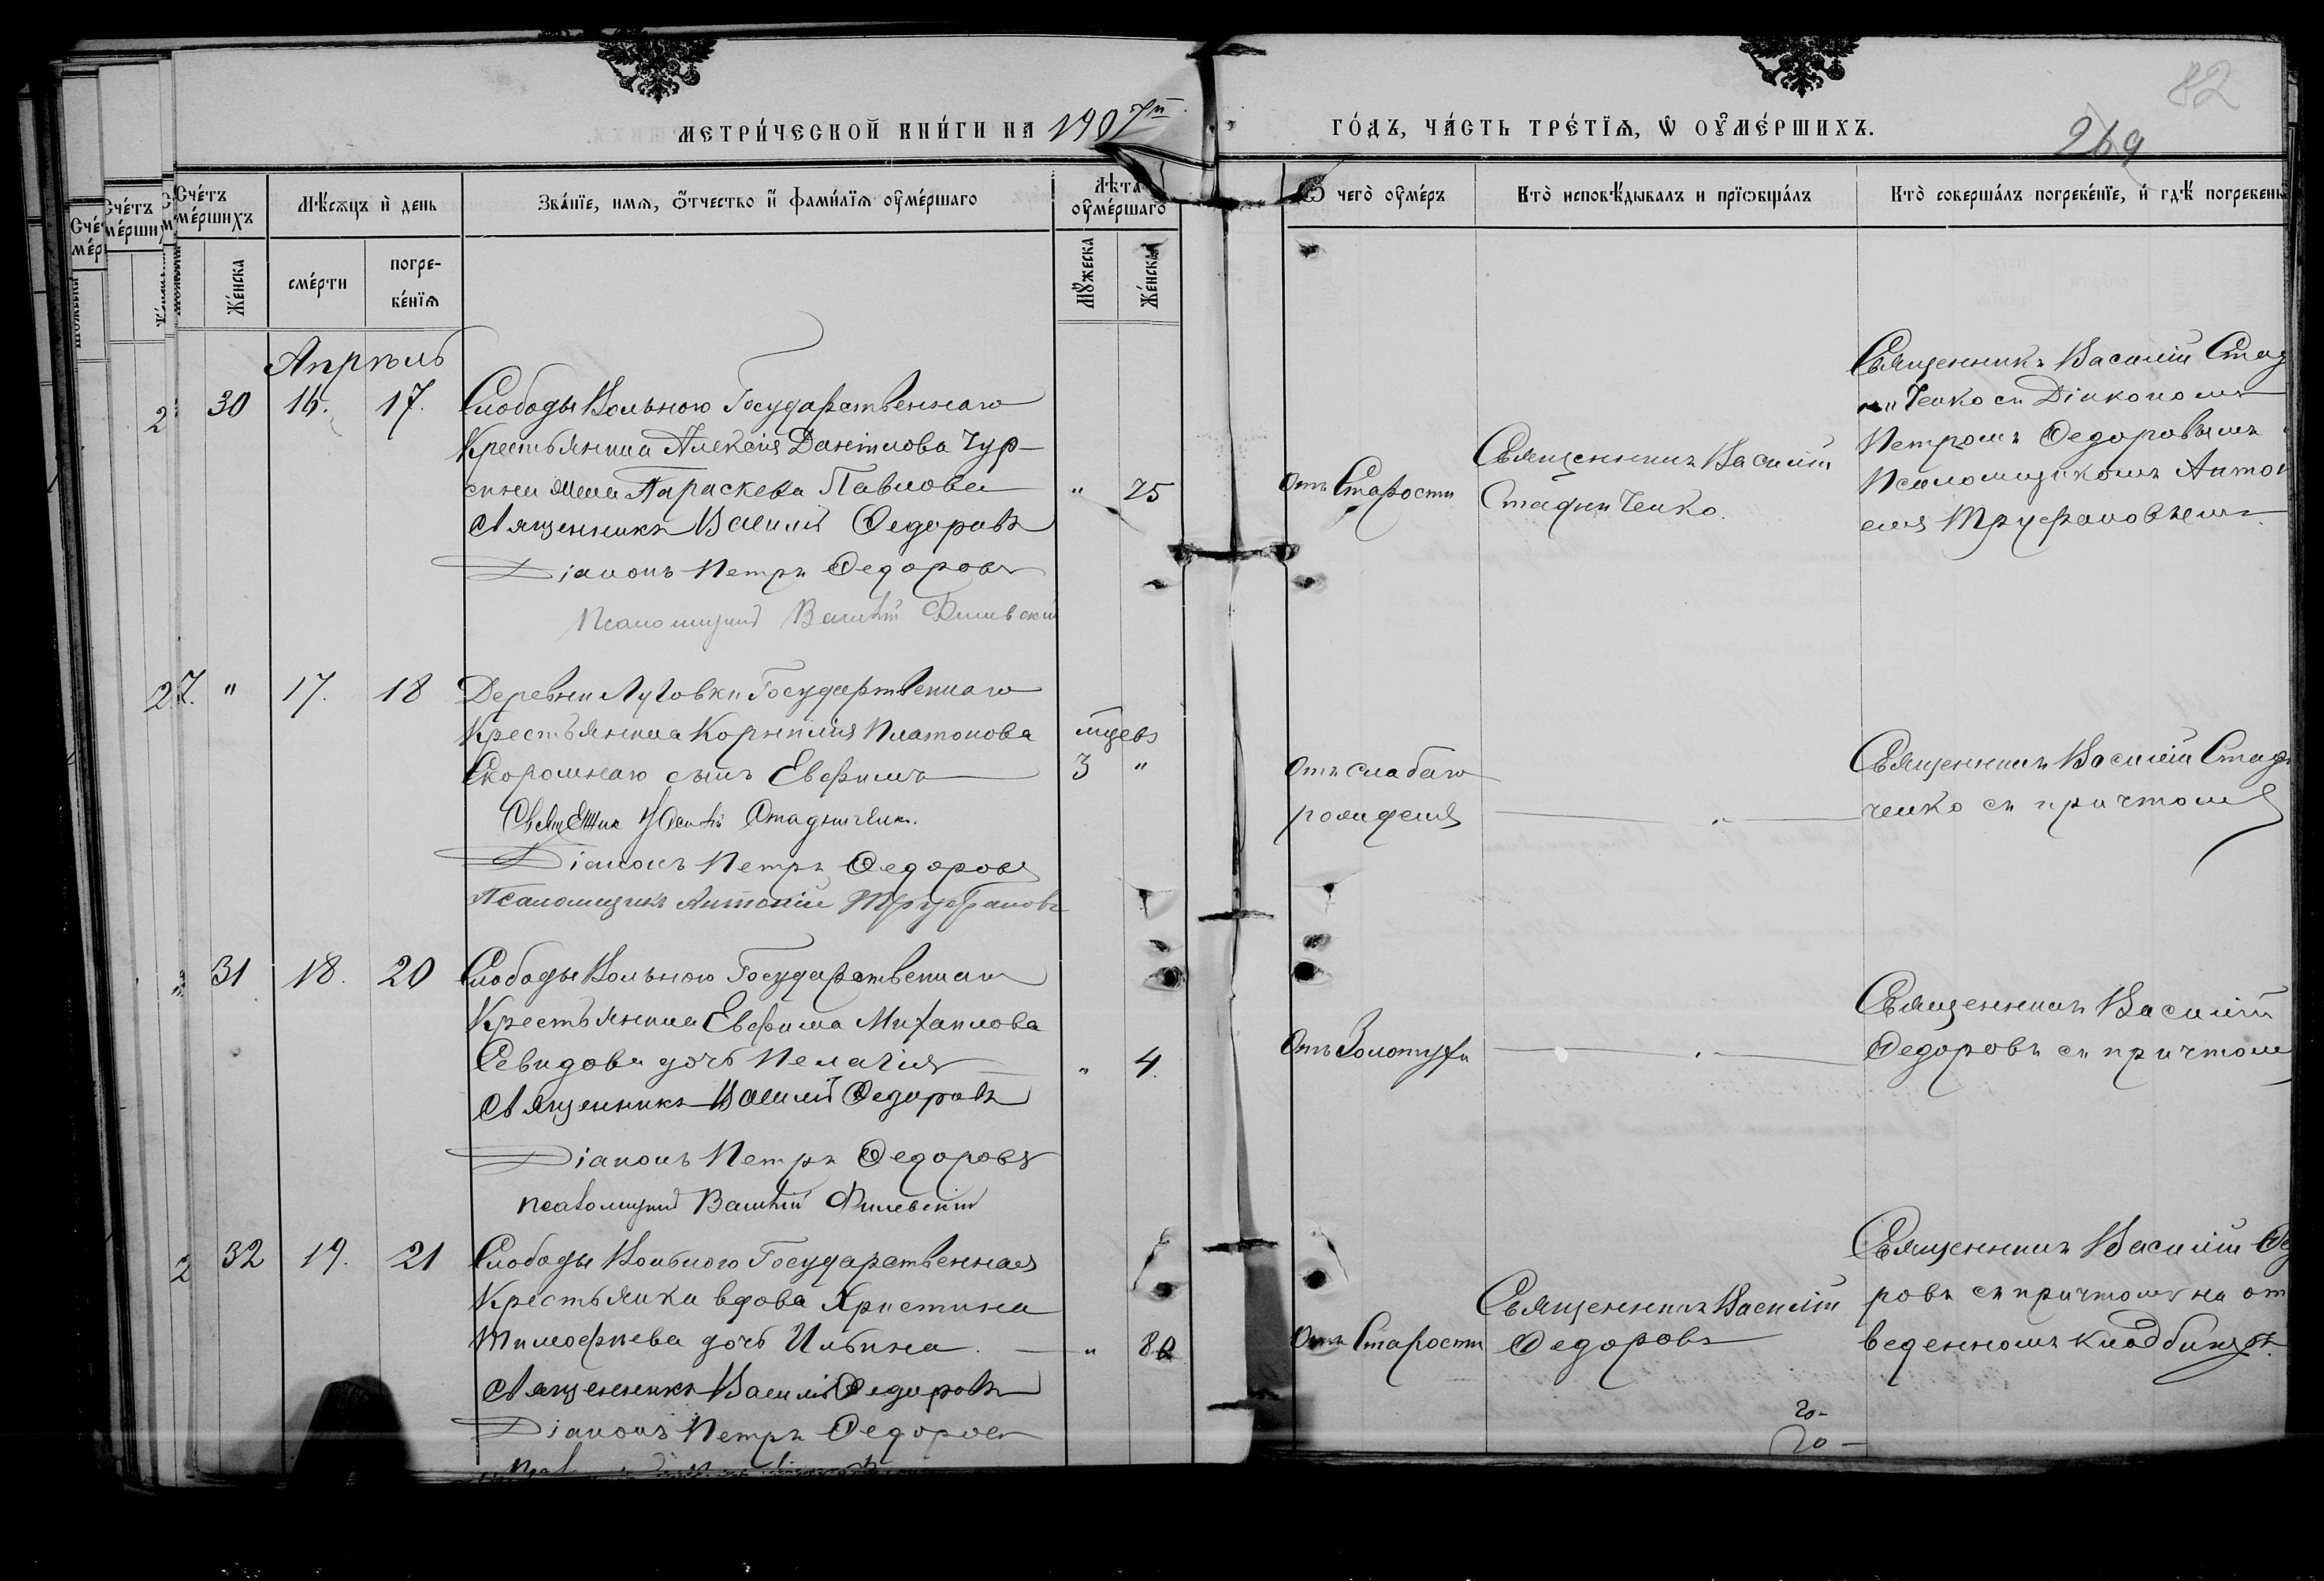 82
МЕТРИ́ЧЕСКОЙ КНИ́ГИ НА 1907й
ГО́ДЪ, ЧА́СТЬ ТРЕ́ТЇѦ, Ѡ ОУ҆МЕ́РШИХЪ.
269
Сче́тъ
ме́ршихъ
Мѣ́сѧцъ и҆ день
Зва́нїе, имѧ, ѻ҆́тчество и҆ фами́лїѧ оу҆ме́ршаго
Лѣ́та
оу҆ме́ршаго
Ѿ чего̀ оу҆ме́ръ
Кто̀ исповѣ́дывалъ и прїѡбща́лъ
Кто̀ соверша́лъ погребе́нїе, и҆ гдѣ́ погребены
Же́нска
сме́рти
погре-
бе́нїѧ
Мꙋ́жеска
Же́нска
Апрѣль
30 16. 17.
Слободы Вольного Государственнаго
Крестьянина Алексія Даніилова Чур-
сина жена Параскева Павлова
" 75
Священникъ Василій Федоровъ
Діаконъ Петръ Федоровъ
Псаломщикъ Василій
Отъ Старости
Священникъ Василій
Стадниченко.
Священникъ Василій Стад
ниченко съ Діакономъ
Петромъ Федоровымъ
Псаломщикомъ Антон
емъ Труфановымъ
27. " 17. 18
Деревни Луговки Государственнаго
Крестьянина Корнилія Платонова
Скоромнаго сынъ Евфимъ
мцевъ
3 "
Священник Василій Стадниченко.
Діаконъ Петръ Федоровъ
Псаломщикъ Антоній Труфановъ
Отъ слабаго
рожденія
"
Священникъ Василій Стадн
ченко съ причтомъ
" 31 18. 20
Слободы Вольного Государственнаго
Крестьянина Евфима Михаилова
Севидова дочь Пелагія
" 4.
Священникъ Василій Федоровъ
Діаконъ Петръ Федоровъ
Псаломщикъ Василій
Отъ Золотухи
"
Священникъ Василій
Федоровъ съ причтом
32 19. 21
Слободы Вольного Государственная
Крестьянка вдова Христина
Тимофѣева дочь Ильина.
" 80
Священникъ Василій Федоровъ
Діаконъ Петръ Федоровъ
Отъ Старости
Священникъ Василій
Федоровъ
Священникъ Василій Фед
ровъ съ причтомъ на от
веденномъ кладбищѣ.
20-
20-